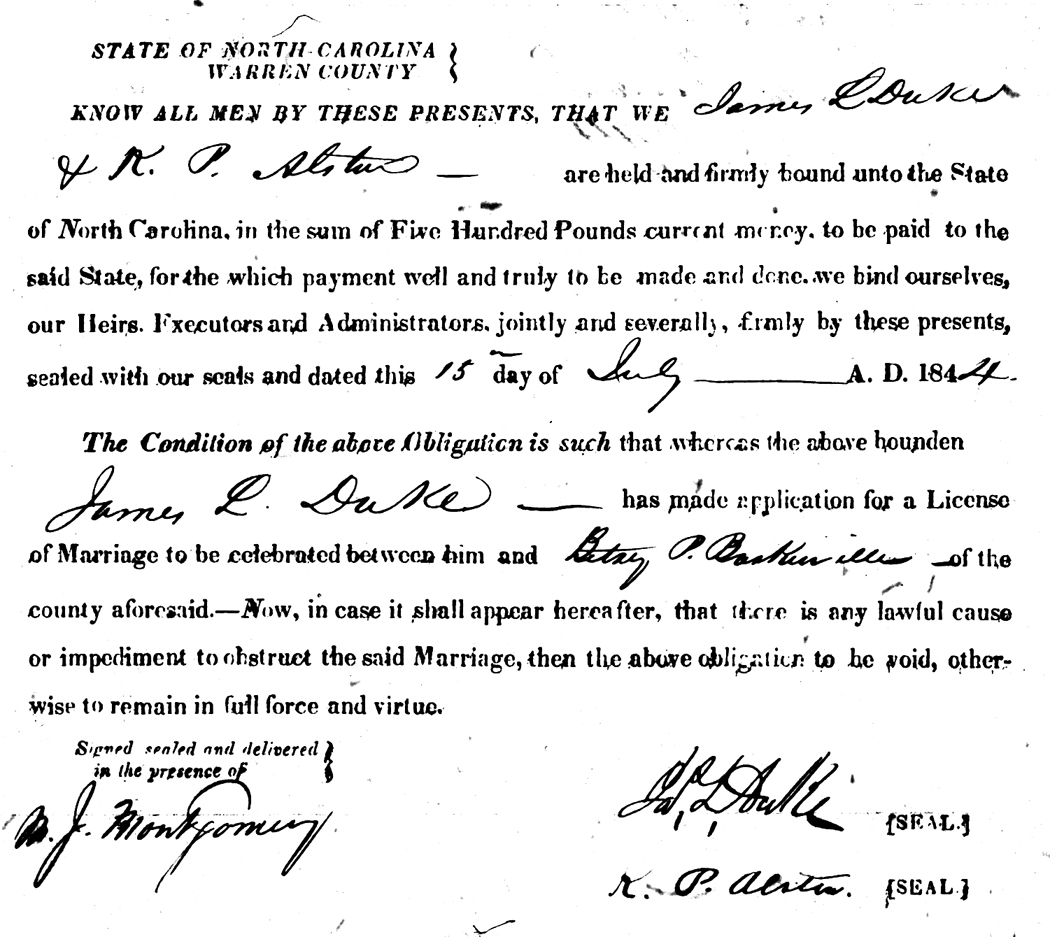 STATE OF NORTH-CAROLINA }
WARREN COUNTY }
KNOW ALL MEN BY THESE PRESENTS, THAT WE James L Duke
& K. P. Alston — are held and firmly bound unto the State
of North Carolina, in the sum of Five Hundred Pounds current money, to be paid to the
said State, for the which payment well and truly to be made and done. we bind ourselves,
our Heirs. Executors and Administrators, jointly and severally, firmly by these presents,
sealed with our seals and dated this 15 day of July ——— A. D. 1844.
The Condition of the above Obligation is such that whereas the above bounden
James L. Duke — has made application for a License
of Marriage to be celebrated between him and Betsy P. Baskerville — of the
county aforesaid.—Now, in case it shall appear hereafter, that there is any lawful cause
or impediment to obstruct the said Marriage, then the above obligation to be void, other-
wise to remain in full force and virtue.
Signed sealed and delivered }
in the presence of }
J. Montgomery
Jas. L Duke [SEAL.]
K. P. Alston. [SEAL.]